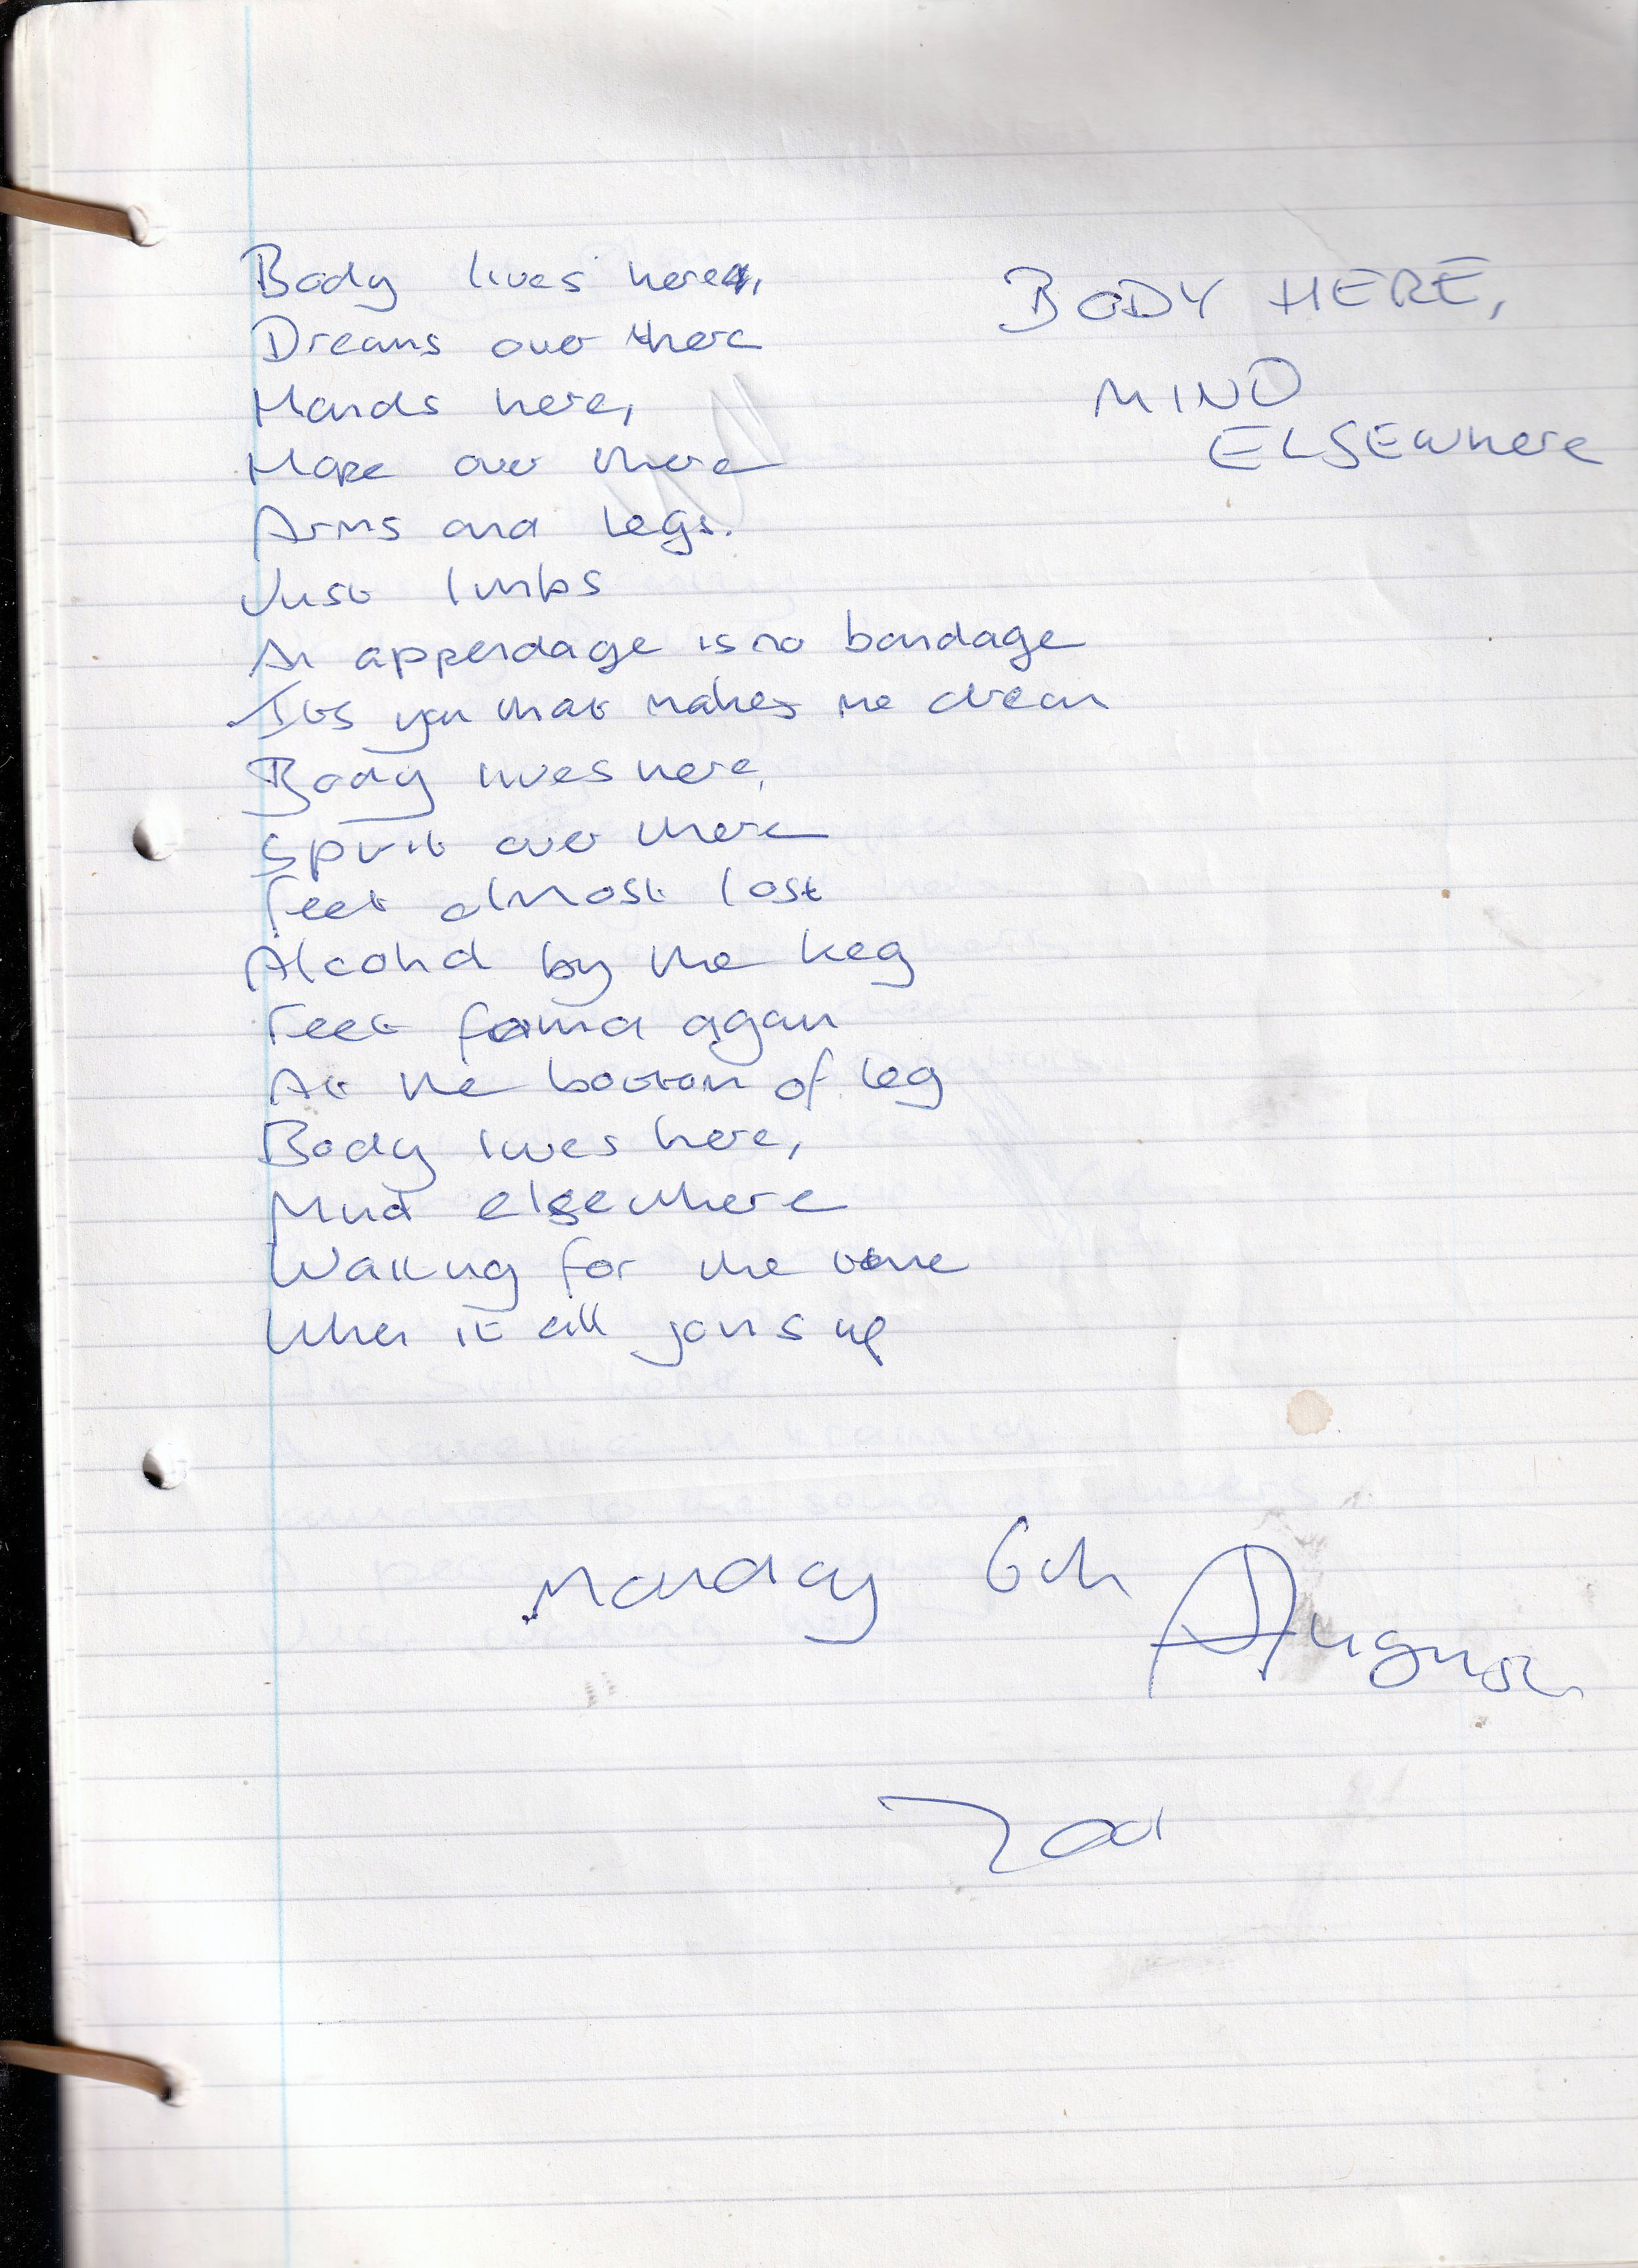 Body lives here,
Dreams over there
Hands here,
Hope over there
Arms and legs.
Just limbs
An appendage is no bondage
Its you that makes me dream
Body lives here,
Spirit over there
Feet almost lost
Alcohol by the keg
Feet found again
At the bottom of leg
Body lives here,
Mind elsewhere
Waiting for the time
When it all joins up
BODY HERE,
MIND
ELSEWhere
Monday 6th August